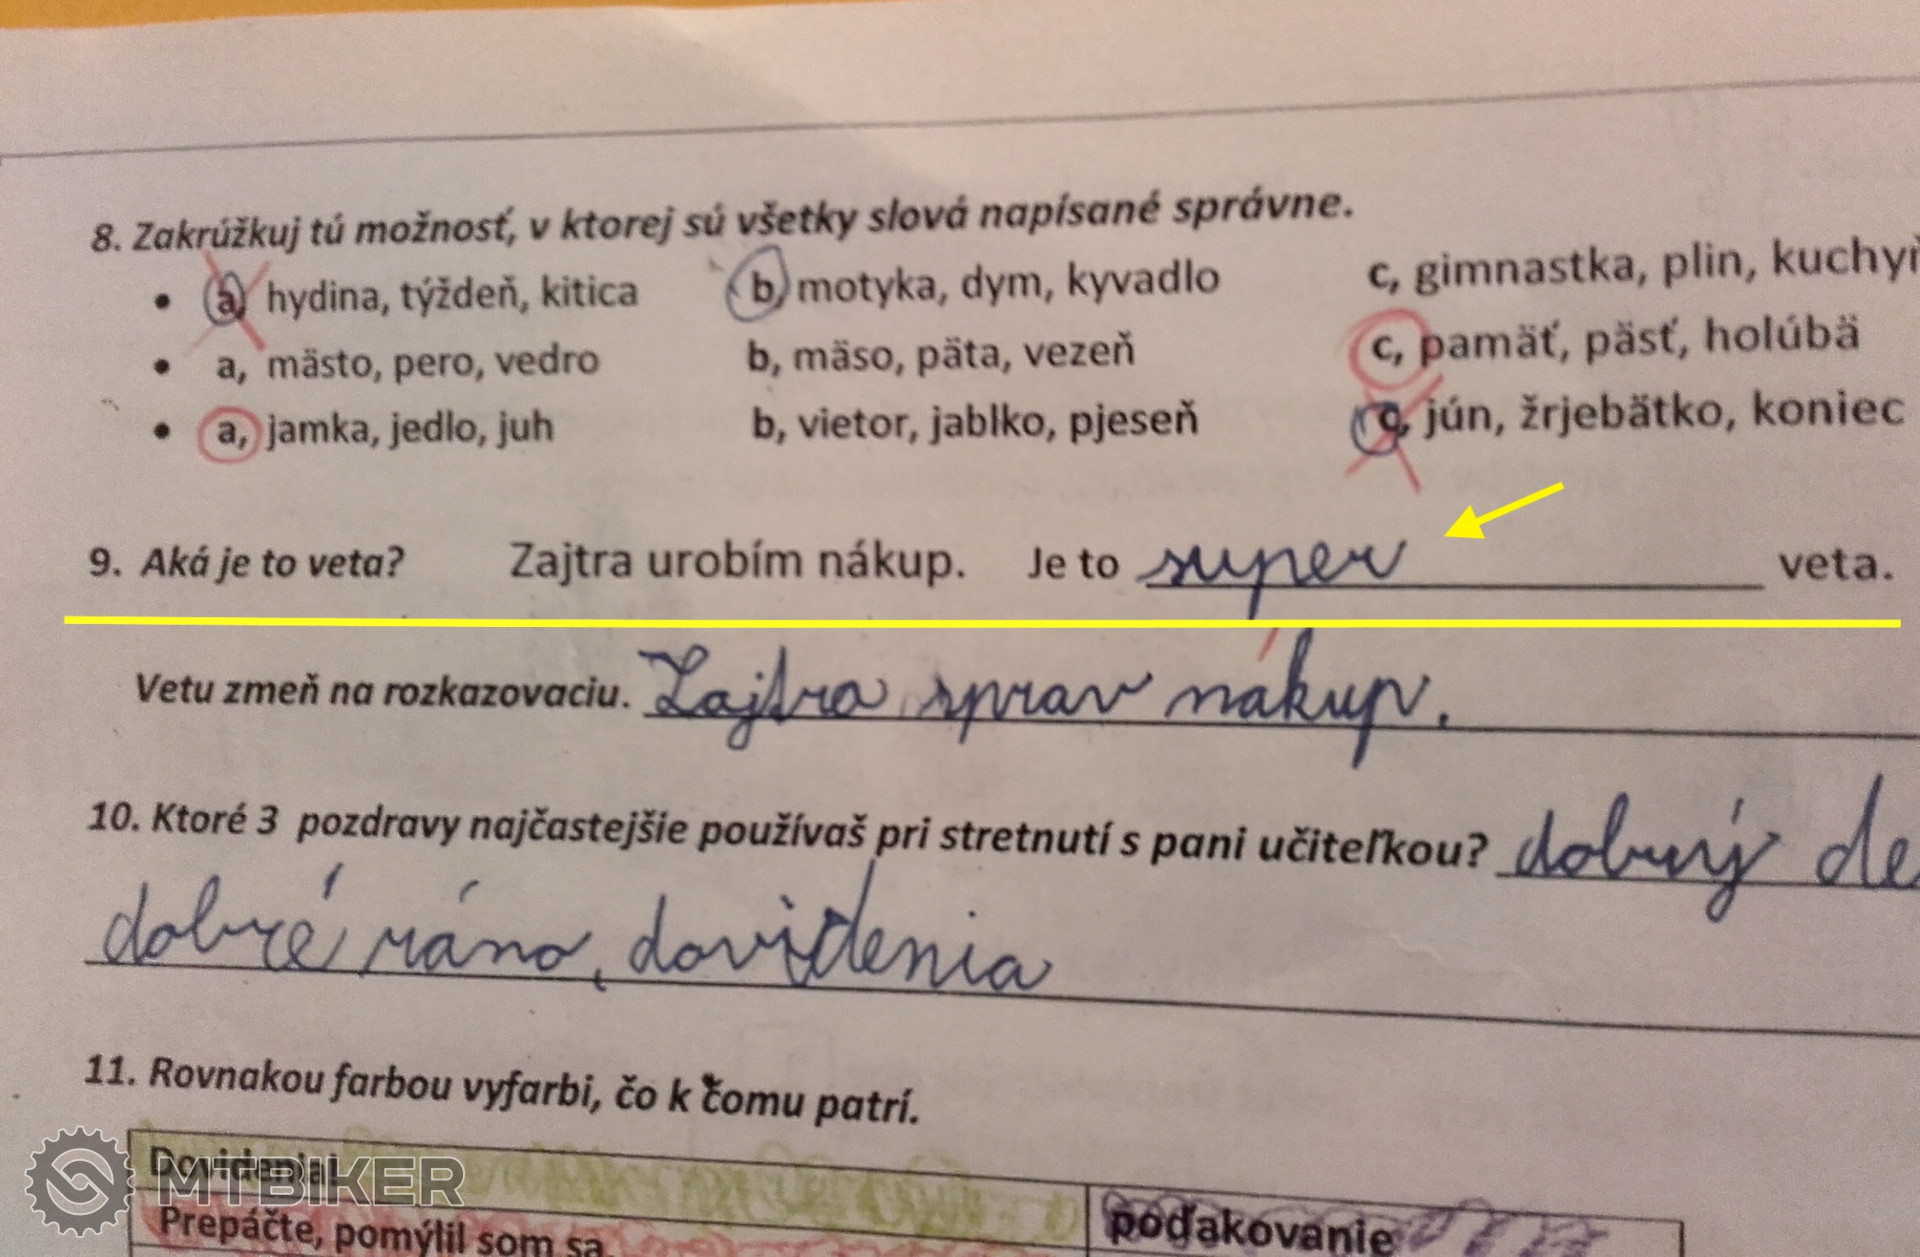 8. Zakrúžkuj tú možnosť, v ktorej sú všetky slová napísané správne.
• a, hydina, týždeň, kitica b, motyka, dym, kyvadlo c, gimnastka, plin, kuchyň
• a, mästo, pero, vedro b, mäso, päta, vezeň c, pamäť, päsť, holúbä
• a, jamka, jedlo, juh b, vietor, jablko, pjeseň c, jún, žrjebätko, koniec
9. Aká je to veta? Zajtra urobím nákup. Je to super veta.
Vetu zmeň na rozkazovaciu. Zajtra sprav nákup.
10. Ktoré 3 pozdravy najčastejšie používaš pri stretnutí s pani učiteľkou? dobrý de
dobré ráno, dovidenia
11. Rovnakou farbou vyfarbi, čo k čomu patrí.
Dovidenia!
Prepáčte, pomýlil som sa. poďakovanie
MTBIKER